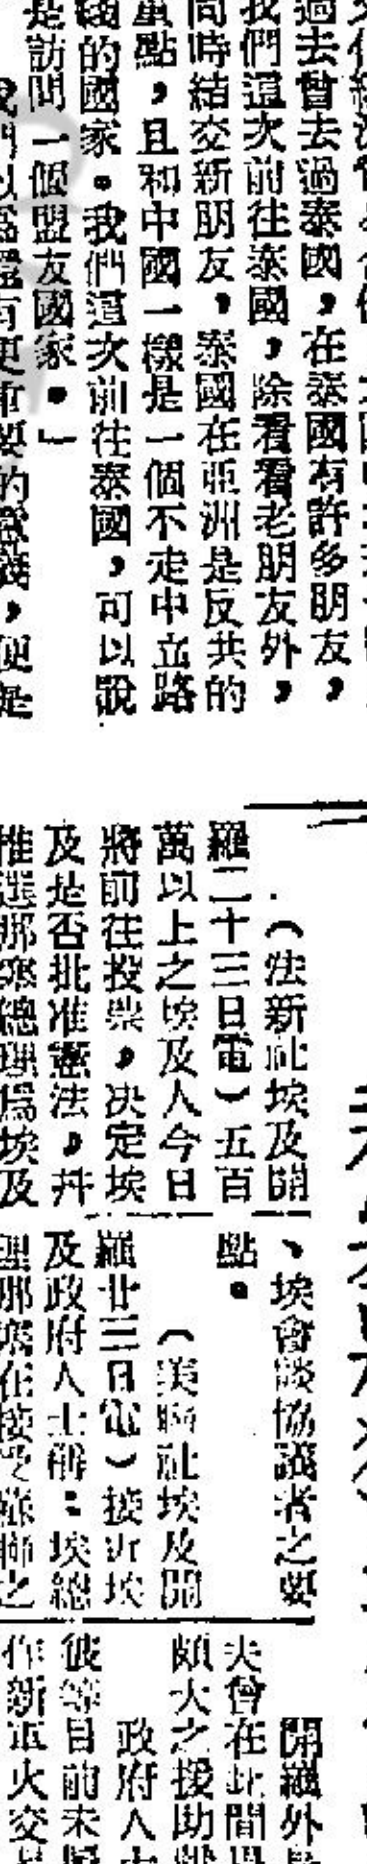 過去曾去過泰國，在泰國有許多朋友，
我們這次前往泰國，除看看老朋友外，
同時結交新朋友，泰國在亞洲是反共的
重點，且和中國一樣是一個不走中立路
綫的國家。我們這次前往泰國，可以說
是訪問一個盟友國家。」
我們以爲還有更重要的意義，便是
（法新社埃及開
羅二十三日電）五百
萬以上之埃及人今日
將前往投票，决定埃
及是否批准憲法，幷
推選那塞總理爲埃及
、埃會談協議者之要
點。
（美聯社埃及開
羅廿三日電）接近埃
及政府人士稱：埃總
理那塞在接受蘇聯之
開羅外
夫曾在此間
頗大之援助
政府人士
彼等目前未
作新軍火交